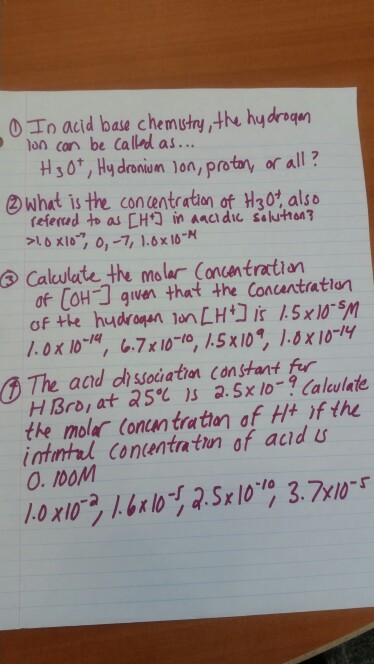 ① In acid base chemistry, the hydrogen
ion can be called as...
H3O⁺, Hydronium ion, proton, or all?
② What is the concentration of H3O⁺, also
refereed to as [H⁺] in aacidic solution?
>1.0 x10⁻⁷, 0, -7, 1.0x10⁻¹⁴
③ Calculate the molar Concentration
of [OH⁻] given that the Concentration
of the hydrogen ion [H⁺] is 1.5x10⁻⁵M
1.0x10⁻¹⁴, 6.7x10⁻¹⁰, 1.5x10⁹, 1.0x10⁻¹⁴
④ The acid dissociation constant for
HBro, at 25°C is 2.5x10⁻⁹. Calculate
the molar concentration of H+ if the
concentration of acid is
0.100M
1.0x10⁻², 1.6x10⁻⁵, 2.5x10⁻¹⁰, 3.7x10⁻⁵